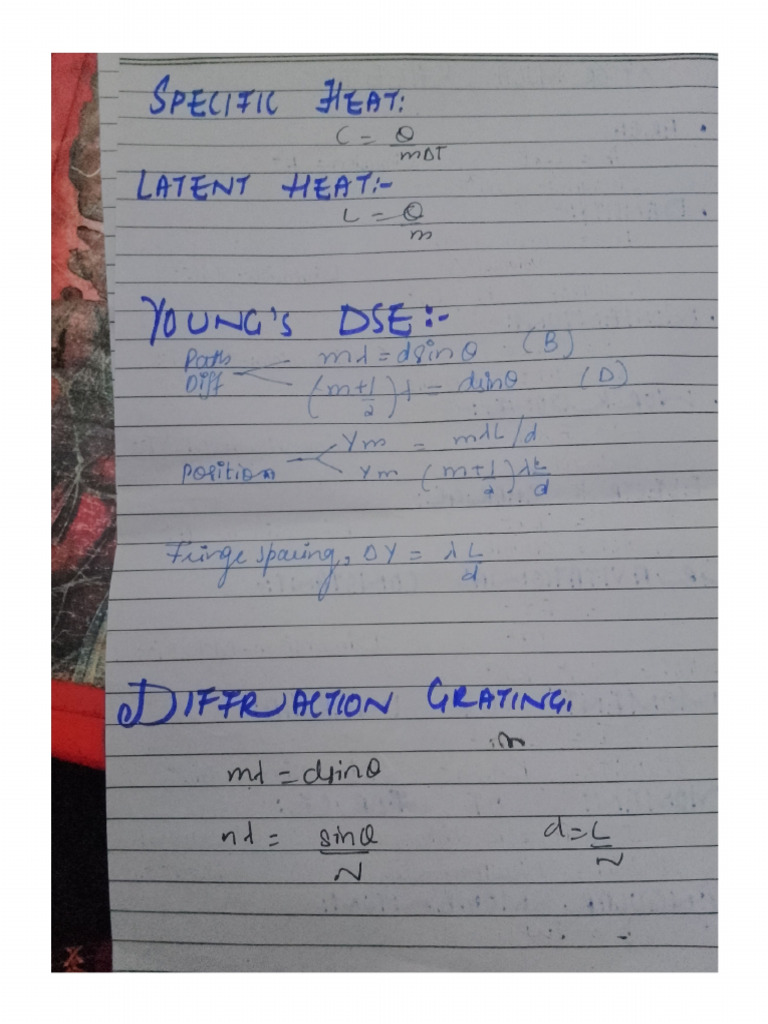 SPECIFIC HEAT:
C = Q/mΔT
LATENT HEAT:-
L = Q/m
YOUNG'S DSE:-
Path Diff
mλ = dsinθ (B)
(m+1/2)λ = dsinθ (D)
Position
Ym = mλL/d
Ym (m+1/2)λL/d
Fringe spacing, ΔY = λL/d
DIFFRACTION GRATING.
mλ = dsinθ
nλ = sinθ/N d=L/N